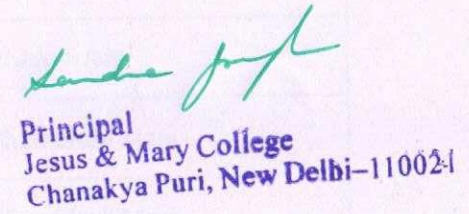 Sandra Joseph
Principal
Jesus & Mary College
Chanakya Puri, New Delhi–110021